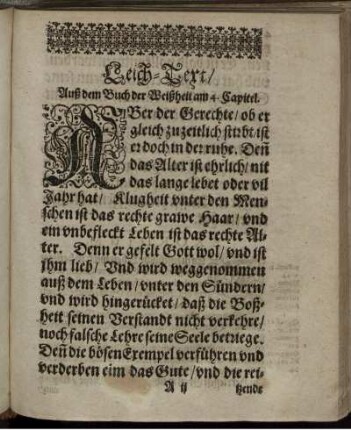 Leich-Text/
Auß dem Buch der Weißheit am 4. Capitel.
ABer der Gerechte/ ob er
gleich zu zeitlich stirbt ist
er doch in der ruhe. Deñ
das Alter ist ehrlich/ nit
das lange lebet oder vil
Jahr hat/ Klugheit vnter den Men-
schen ist das rechte grawe Haar/ vnd
ein vnbefleckt Leben ist das rechte Al-
ter. Denn er gefelt Gott wol/ vnd ist
jhm lieb/ Vnd wird weggenommen
auß dem Leben/ vnter den Sündern/
vnd wird hingerücket/ daß die Boß-
heit seinen Verstandt nicht verkehre/
noch falsche Lehre seine Seele betriege.
Deñ die bösen Exempel verführen vnd
verderben eim das Gute/ vnd die rei-
A ij
tzende